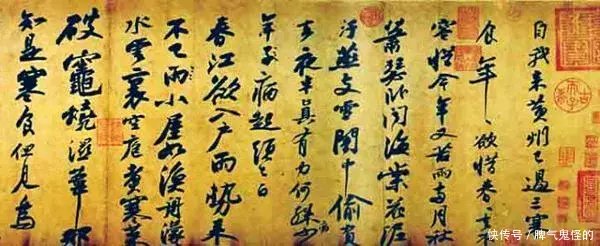 自我来黄州已過三寒
食年〻欲惜春春去不
容惜今年又苦雨兩月秋
蕭瑟卧聞海棠花泥
汙燕支雪闇中偷負
去夜半真有力何殊少
年子病起須已白
春江欲入户雨勢来
不已雨小屋如漁舟濛〻
水雲裏空庖煮寒菜
破竈燒濕葦那
知是寒食但見烏
快传号/脾气鬼怪的